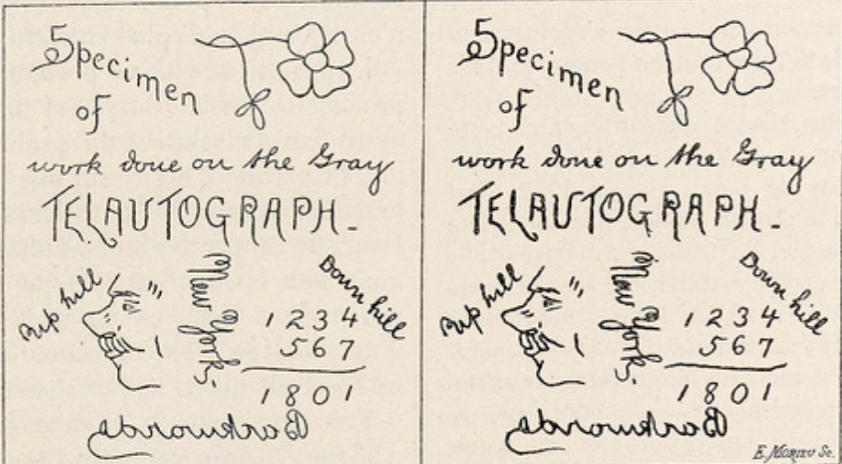 Specimen
of
work done on the Gray
TELAUTOGRAPH.-
up hill
New York.
Down hill
1 2 3 4
5 6 7
1 8 0 1
Backwards
Specimen
of
work done on the Gray
TELAUTOGRAPH.-
up hill
New York.
Down hill
1 2 3 4
5 6 7
1 8 0 1
Backwards
E. MORIEU Sc.